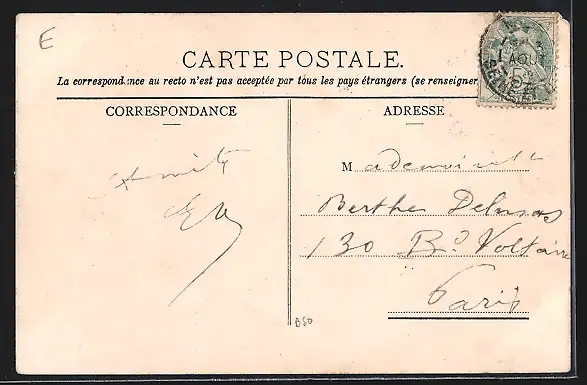 E
CARTE POSTALE.
La correspondance au recto n'est pas acceptée par tous les pays étrangers (se renseigner
CORRESPONDANCE
ADRESSE
Amitié
Mademoiselle
Berthe Delmas
130 Bd Voltaire
Paris
B50
AOUT